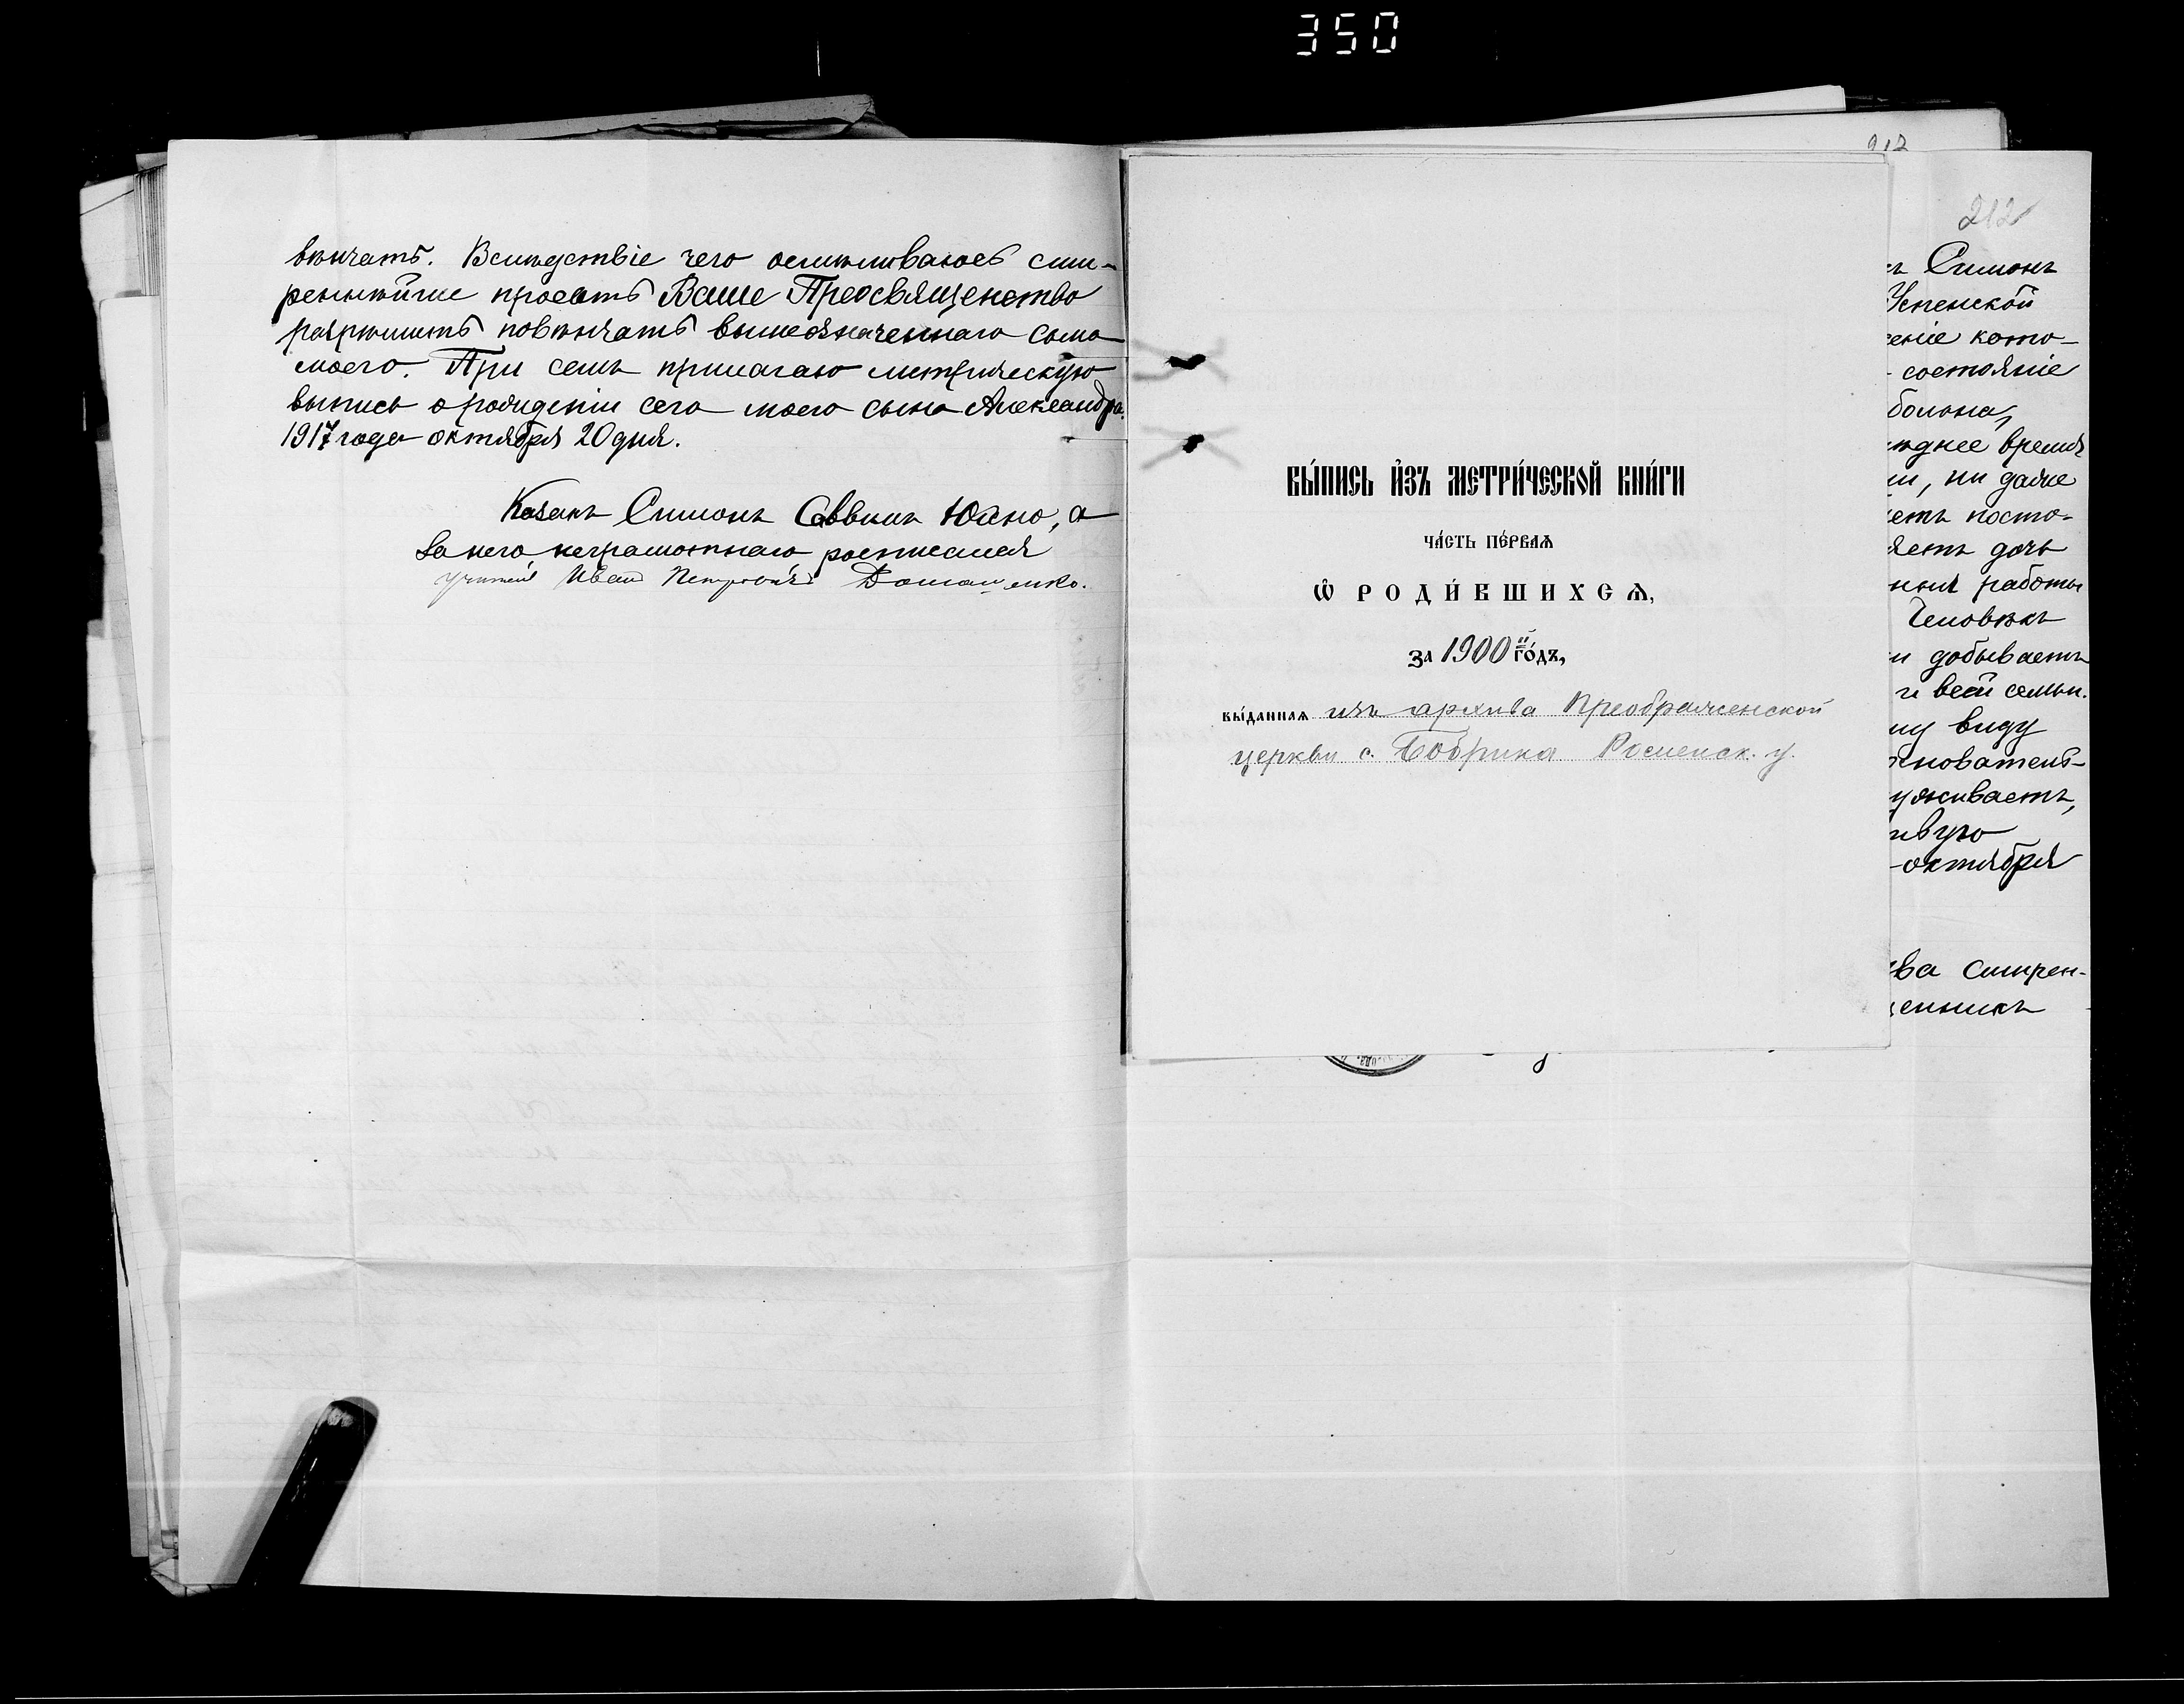 350
вѣнчать. Вслѣдствіе чего осмѣливаюсь сми-
реннѣйше просить Ваше Преосвященство
разрѣшить повѣнчать вышеозначеннаго сына
моего. При семъ прилагаю метрическую
выпись о рожденіи сего моего сына Александра.
1917 года октября 20 дня.
Казакъ Симонъ Саввинъ Юхно, а
за него неграмотнаго росписался
учитель Иванъ Петровичъ
вы́пись и҆зъ метри́ческой кни́ги
ча́сть пе́рваѧ
ѽ роди́вшихсѧ,
за 1900 й го́дъ,
вы́даннаѧ изъ архива Преображенской
церкви с. Бобрика Роменск. у.
212
212
Симонъ
Успенской
еніе кото-
состояніе
больна,
днее время
и, ни даже
етъ посто-
яетъ дочь
ныя работы
Человѣкъ
и добываетъ
и всей семьи.
му виду
нователь-
уживаетъ,
ивую
октября
ва смирен-
енникъ